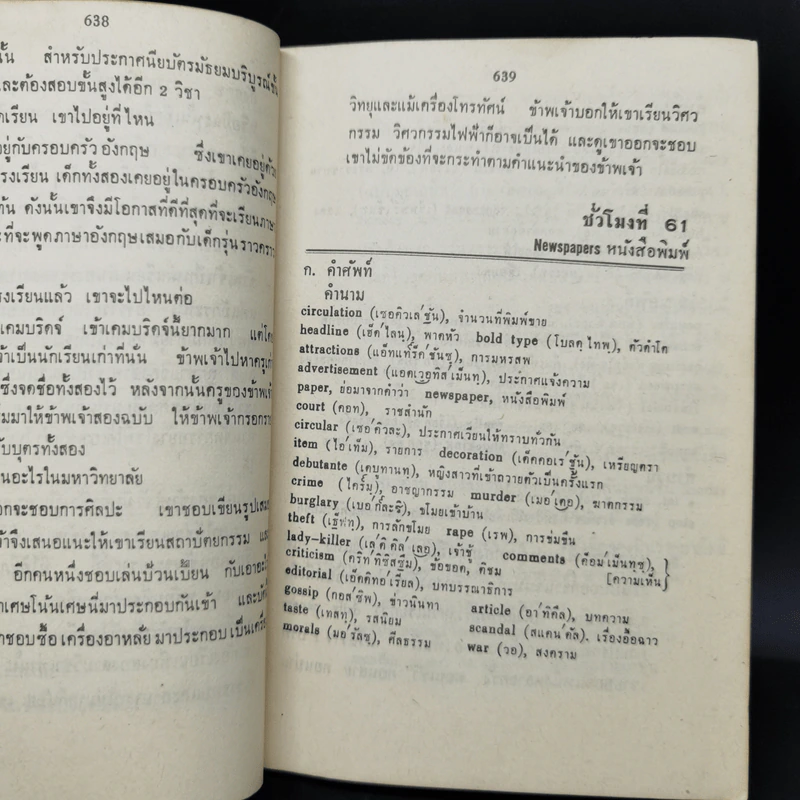 638
นั้น สำหรับประกาศนียบัตรมัธยมบริบูรณ์ชั้น
และต้องสอบขั้นสูงได้อีก 2 วิชา
เรียน เขาไปอยู่ที่ไหน
อยู่กับครอบครัวอังกฤษ ซึ่งเขาเคยอยู่ด้วย
โรงเรียน เด็กทั้งสองเคยอยู่ในครอบครัวอังกฤษ
ดังนั้นเขาจึงมีโอกาสที่ดีที่สุดที่จะเรียนภาษา
ะที่จะพูดภาษาอังกฤษเสมอกับเด็กรุ่นราวคราว
รงเรียนแล้ว เขาจะไปไหนต่อ
เคมบริดจ์ เข้าเคมบริดจ์นี้ยากมาก แต่โดย
เป็นนักเรียนเก่าที่นั่น ข้าพเจ้าไปหาครูเก่า
ซึ่งจดชื่อทั้งสองไว้ หลังจากนั้นครูของข้าพเจ้า
มมาให้ข้าพเจ้าสองฉบับ ให้ข้าพเจ้ากรอกราย
ับบุตรทั้งสอง
นอะไรในมหาวิทยาลัย
อกจะชอบการศิลปะ เขาชอบเขียนรูปเสมอ
จึงเสนอแนะให้เขาเรียนสถาปัตยกรรม และ
อีกคนหนึ่งชอบเล่นป้วนเปี้ยน กับเอาอะไร
เศษโน้นเศษนี่มาประกอบกันเข้า และบัด
ชอบซื้อเครื่องอาหลั่ยมาประกอบเป็นเครื่อง
639
วิทยุและแม้เครื่องโทรทัศน์ ข้าพเจ้าบอกให้เขาเรียนวิศว
กรรม วิศวกรรมไฟฟ้าก็อาจเป็นได้ และดูเขาออกจะชอบ
เขาไม่ขัดข้องที่จะกระทำตามคำแนะนำของข้าพเจ้า
ชั่วโมงที่ 61
Newspapers หนังสือพิมพ์
ก. คำศัพท์
คำนาม
circulation (เซอคิวเล่ชั่น), จำนวนที่พิมพ์ขาย
headline (เฮ็ดไลนฺ), พาดหัว bold type (โบลดฺ ไทพฺ), ตัวดำโต
attractions (แอ็ทแทร็คชันซฺ), การมหรสพ
advertisement (แอดเวอทิสเม็นทฺ), ประกาศแจ้งความ
paper, ย่อมาจากคำว่า newspaper, หนังสือพิมพ์
court (คอท), ราชสำนัก
circular (เซอคิวละ), ประกาศเวียนให้ทราบทั่วกัน
item (ไอเท็ม), รายการ decoration (เด็คคอเรชั่น), เหรียญตรา
debutante (เดบูทานทฺ), หญิงสาวที่เข้าถวายตัวเป็นครั้งแรก
crime (ไครมฺ), อาชญากรรม murder (เมอเดอ), ฆาตกรรม
burglary (เบอกิ้ละริ), ขโมยเข้าบ้าน
theft (เธ็ฟทฺ), การลักขโมย rape (เรพ), การข่มขืน
lady-killer (เลดิ คิลเลอ), เจ้าชู้ comments (ค็อมเม็นทซฺ),
criticism (คริททิซิสซึม), ข้อขอด, ติชม [ความเห็น]
editorial (เอ็ดดิทอเรียล), บทบรรณาธิการ
gossip (กอสซิพ), ข่าวนินทา article (อาทิคึล), บทความ
taste (เทสทฺ), รสนิยม scandal (สแคนดัล), เรื่องอื้อฉาว
morals (มอรัลซฺ), ศีลธรรม war (วอ), สงคราม